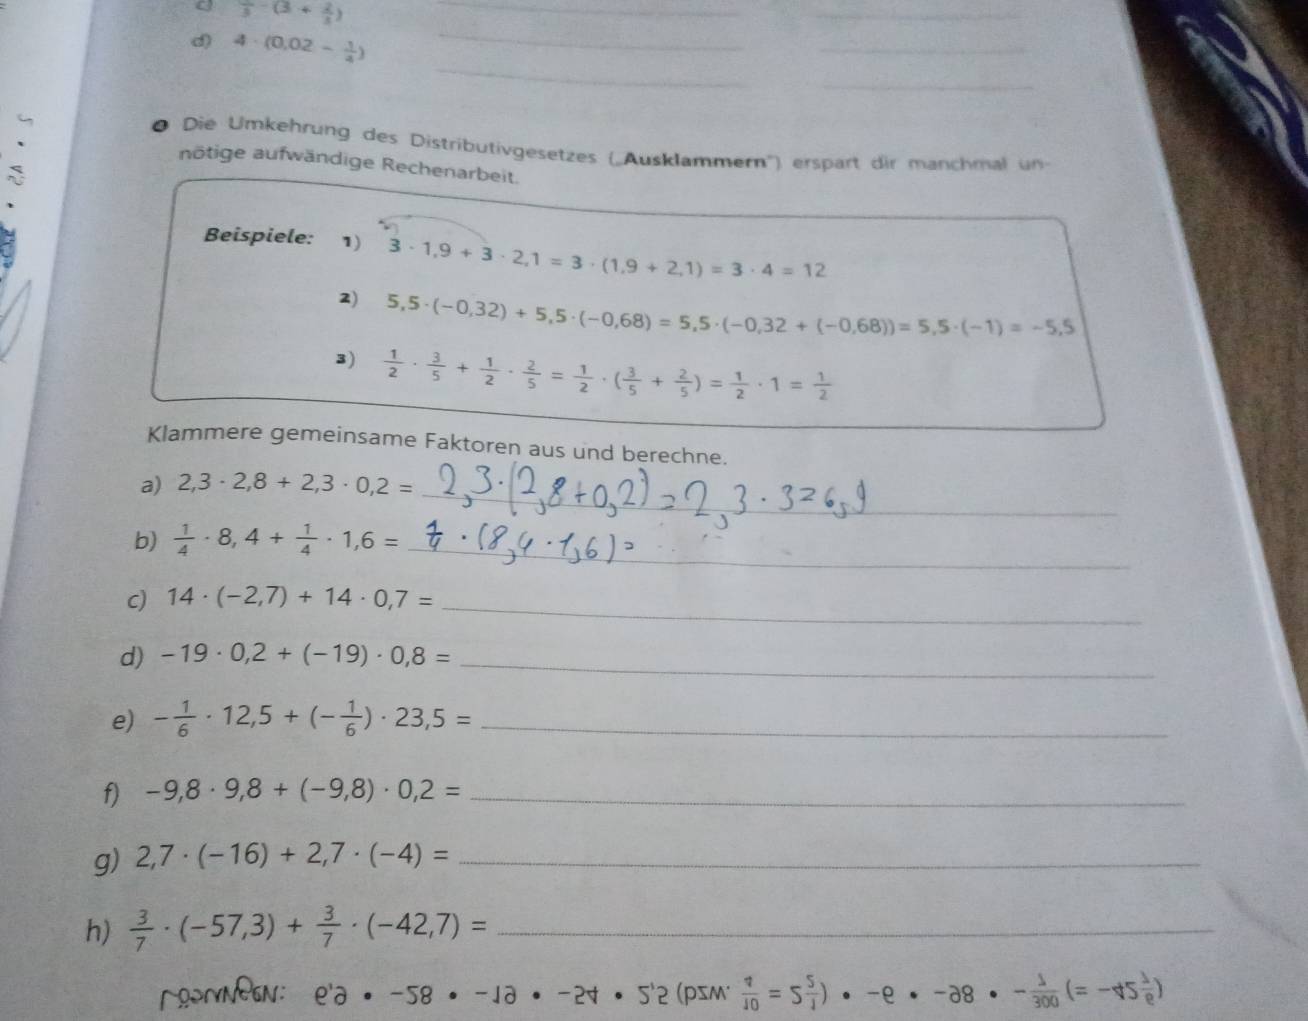 d) 4 · (0,02 − 1/4)
Die Umkehrung des Distributivgesetzes („Ausklammern") erspart dir manchmal un-
nötige aufwändige Rechenarbeit.
Beispiele: 1) 3 · 1,9 + 3 · 2,1 = 3 · (1,9 + 2,1) = 3 · 4 = 12
2) 5,5 · (−0,32) + 5,5 · (−0,68) = 5,5 · (−0,32 + (−0,68)) = 5,5 · (−1) = −5,5
3) 1/2 · 3/5 + 1/2 · 2/5 = 1/2 · (3/5 + 2/5) = 1/2 · 1 = 1/2
Klammere gemeinsame Faktoren aus und berechne.
a) 2,3 · 2,8 + 2,3 · 0,2 = 2,3 · (2,8 + 0,2) = 2,3 · 3 = 6,9
b) 1/4 · 8,4 + 1/4 · 1,6 = 1/4 · (8,4 · 1,6) =
c) 14 · (−2,7) + 14 · 0,7 =
d) −19 · 0,2 + (−19) · 0,8 =
e) −1/6 · 12,5 + (−1/6) · 23,5 =
f) −9,8 · 9,8 + (−9,8) · 0,2 =
g) 2,7 · (−16) + 2,7 · (−4) =
h) 3/7 · (−57,3) + 3/7 · (−42,7) =